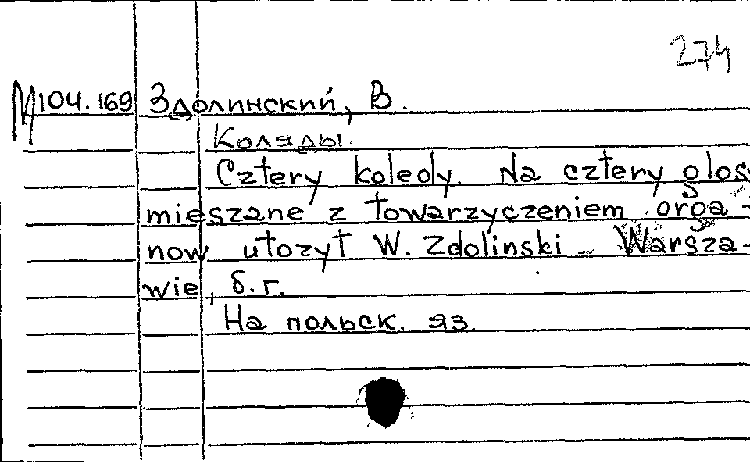 274
М104.169 Здолинский, В.
Коляды.
Cztery kolędy. Na cztery glos
mieszane z towarzyczeniem orga-
now utozyt W. Zdolinski Warsza-
wie, б.г.
На польск. яз.